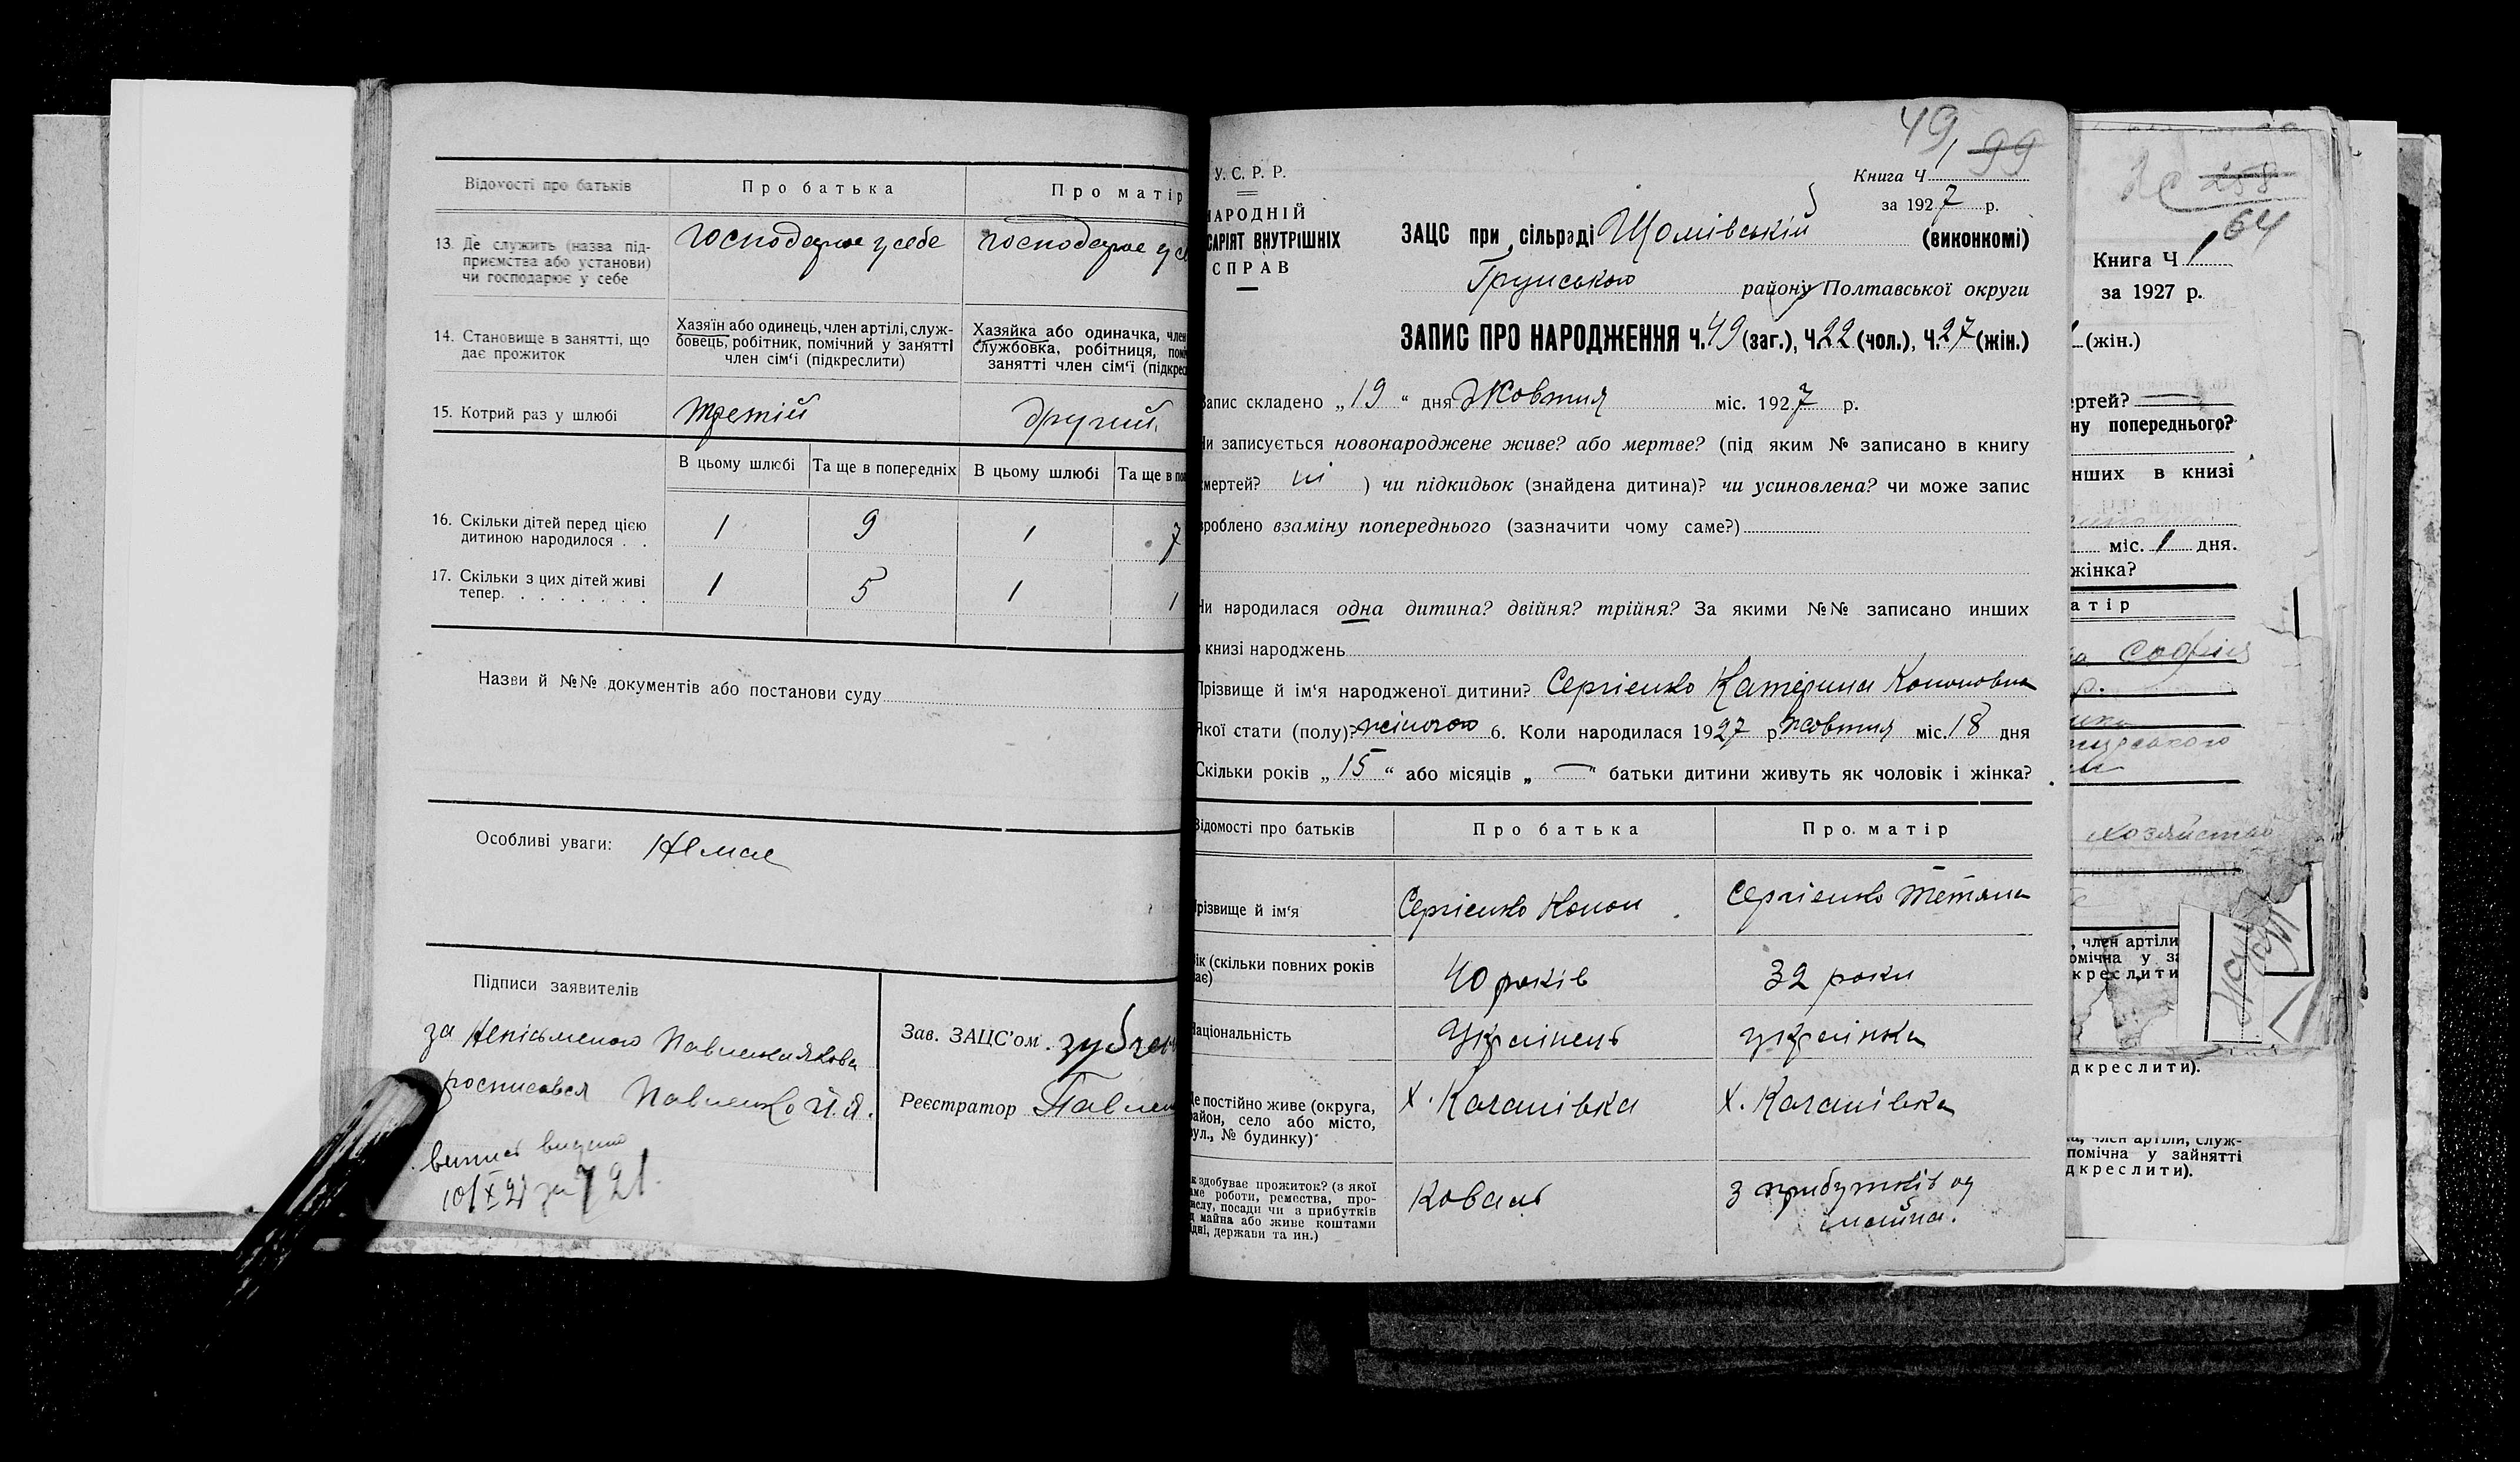 Відомості про батьків
Про батька
Про матір
13. Де служить (назва під-
приємства або установи)
чи господарює у себе
господарює у себе
господарює у се
14. Становище в занятті, що
дає прожиток
Хазяїн або одинець, член артілі, служ-
бовець, робітник, помічний у занятті
член сім'ї (підкреслити)
Хазяйка або одиначка, член
службовка, робітниця, помі
занятті член сім'ї (підкрес
15. Котрий раз у шлюбі
третій
другий
В цьому шлюбі
Та ще в попередніх
В цьому шлюбі
Та ще в поп
16. Скільки дітей перед цією
дитиною народилося . .
1 9 1 7
17. Скільки з цих дітей живі
тепер. . . . . . . .
1 5 1 1
Назви й №№ документів або постанови суду
Особливі уваги: Немає
Підписи заявителів
за неписьменого Павленка Якова
росписався Павленко Й.Я.
Зав. ЗАЦС'ом
Реєстратор Павлен
випис видано
10/X 21 за 721.
49
99
У.С.Р.Р.
НАРОДНІЙ
САРІЯТ ВНУТРІШНІХ
СПРАВ
Книга Ч 1
за 1927 р.
ЗАЦС при сільраді Шомівській (виконкомі)
Грунського району Полтавської округи
ЗАПИС ПРО НАРОДЖЕННЯ Ч. 49 (заг.), Ч. 22 (чол.), Ч. 27 (жін.)
Запис складено „19“ дня Жовтня міс. 1927 р.
Чи записується новонароджене живе? або мертве? (під яким № записано в книгу
смертей? ні ) чи підкидьок (знайдена дитина)? чи усиновлена? чи може запис
зроблено взаміну попереднього (зазначити чому саме?)
Чи народилася одна дитина? двійня? трійня? За якими №№ записано инших
в книзі народжень
Прізвище й ім'я народженої дитини? Сергієнко Катерина Кононовна
Якої стати (полу)? жіночою 6. Коли народилася 1927 р. жовтня міс. 18 дня
Скільки років „15“ або місяців „—“ батьки дитини живуть як чоловік і жінка?
Відомості про батьків
Про батька
Про матір
Прізвище й ім'я
Сергієнко Конон
Сергієнко Тетяна
Вік (скільки повних років
має)
40 років
32 роки
Національність
Українець
українка
Де постійно живе (округа,
район, село або місто,
вул., № будинку)
х. Качанівка
х. Качанівка
Як здобуває прожиток? (з якої
саме роботи, ремества, про-
мислу, посади чи з прибутків
від майна або живе коштами
рідні, держави та ин.)
Коваль
з прибутків од
майна.
258
64
Книга Ч 1
за 1927 р.
(жін.)
ертей?
ну попереднього?
нших в книзі
міс. 1 дня.
жінка?
атір
Софія
хозяйство
, член артіли
омічна у за
креслити
дкреслити).
ка, член артіли, служ-
помічна у зайнятті
дкреслити).